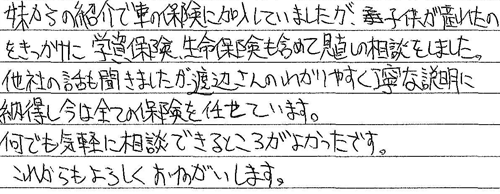 妹からの紹介で車の保険に加入していましたが、子供が産れたの
をきっかけに学資保険、生命保険も含めて見直しの相談をしました。
他社の話も聞きましたが渡辺さんのわかりやすく丁寧な説明に
納得し今は全ての保険を任せています。
何でも気軽に相談できるところがよかったです。
これからもよろしくおねがいします。